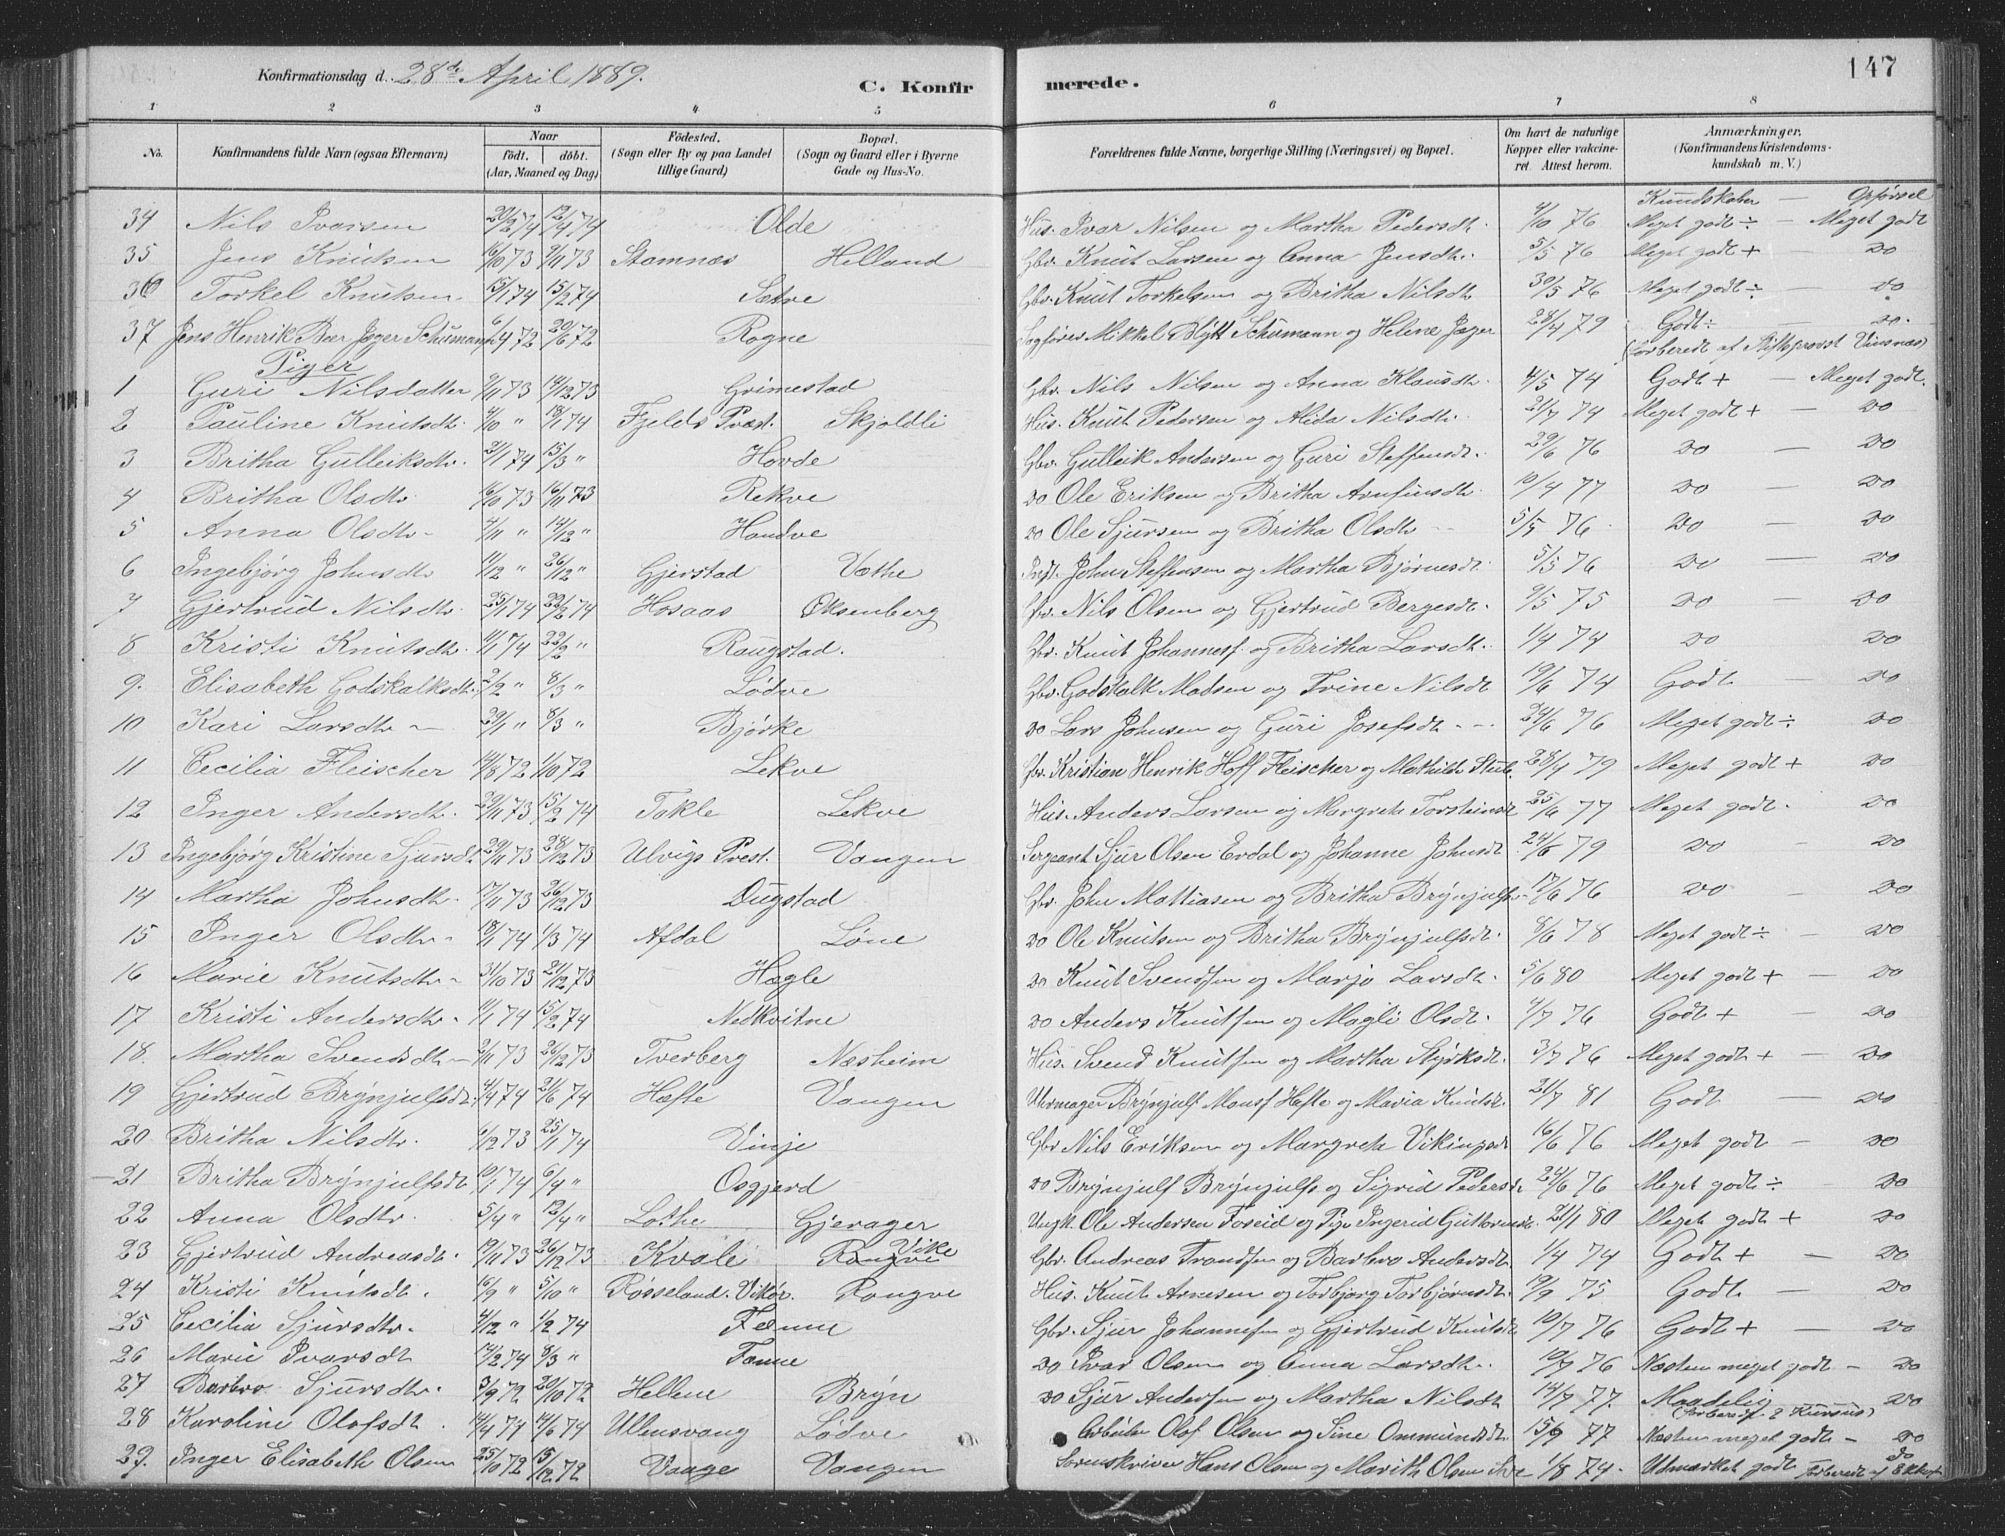 Konfirmationsdag d. 28de April 1889.
C. Konfirmerede.
147
1 2 3 4 5 6 7 8
No. Konfirmandens fulde Navn (ogsaa Efternavn) Naar födt. döbt. (Aar, Maaned og Dag) Födested. (Sogn eller By og paa Landet tillige Gaard) Bopæl. (Sogn og Gaard eller i Byerne Gade og Hus-No. Forældrenes fulde Navne, borgerlige Stilling (Næringsvei) og Bopæl. Om havt de naturlige Kopper eller vakcineret Attest herom. Anmærkninger. (Konfirmandens Kristendomskundskab m. V.)
Kundskaber — Opførsel
34 Nils Ivarsen 20/2 74 12/4 74 Olde Hus. Ivar Nilsen og Martha Pedersdt. 4/10 76 Meget godt ÷ — Meget godt
35 Jens Knutsen 16/10 73 9/11 73 Stamnæs Helland Gbr. Knut Larsen og Anna Jensdt. 5/5 76 Meget godt + — do
36 Torkel Knutsen 15/1 74 15/2 74 Sætve Gbr. Knut Torkelsen og Britha Nilsdt 30/5 76 Meget godt ÷ — do
37 Jens Henrik Bar Jager Schumann 6/4 72 20/6 72 Rogne Sagfører Mikkel Blytt Schumann og Helene Jager 28/4 79 Godt ÷ — do.
(forberedt af Stiftsprovst Vinsnæs)
Piger
1 Guri Nilsdatter 9/11 73 14/12 73 Grimestad Gbr. Nils Nilsen og Anna Klausdt. 4/5 74 Godt + — Meget godt.
2 Pauline Knutsdt. 4/10 " 18/1 74 Fjelds Præst. Skjoldli Hus. Knut Pedersen og Alida Nilsdt. 21/7 74 Meget godt + — do
3 Britha Gulleiksdtr. 21/1 74 15/3 " Hovde Gbr. Gulleik Andersen og Guri Steffensdt. 29/6 76 do — do
4 Britha Olsdtr 16/10 73 16/11 73 Rekve do Ole Eriksen og Britha Arnfinsdtr 10/4 77 do — do
5 Anna Olsdtr. 4/11 " 14/12 " Handve do Ole Sjursen og Britha Olsdtr 5/5 76 do — do
6 Ingebjørg Johnsdtr 11/12 " 26/12 " Gjerstad Væthe Inds. John Steffensen og Martha Bjørnsdt. 5/5 76 do — do
7 Gjertrud Nilsdtr. 25/1 74 22/2 74 Hosaas Oksenberg Gbr. Nils Olsen og Gjertrud Bergesdt. 9/5 75 do — do
8 Kristi Knutsdtr. 11/1 74 22/2 " Raugstad. Gbr. Knut Johannesf. og Britha Larsdt. 1/4 74 do — do
9. Elisabeth Godskalksdt. 2/2 " 8/3 " Lødve Gbr. Godskalk Madsen og Trine Nilsdt 19/6 74 Godt — do
10 Kari Larsdtr 29/1 " 8/3 " Bjørke do Lars Johnsen og Guri Josefsdt. 24/6 76 Meget godt ÷ do
11 Cecilia Fleischer 14/8 72 1/10 72 Lekve Gbr. Kristian Henrik Hoff Fleischer og Mathilde Stub. 28/4 79 Meget godt + do
12 Inger Andersdtr. 29/11 73 15/2 74 Takle Lekve Hus. Anders Larsen og Margrete Torsteinsdt 25/6 77 Meget godt. do
13 Ingebjørg Kristine Sjursdt. 29/11 73 28/12 73 Ulvigs Prest. Vangen Sergeant Sjur Olsen Evdal og Johanne Johnsdt 24/6 79 do — do
14 Martha Johnsdtr. 17/11 73 26/12 73 Dugstad Gbr. John Mattiasen og Britha Brynjulfs 17/6 76 do — do
15 Inger Olsdtr. 18/1 74 1/3 74 Afdal Løne do Ole Knutsen og Britha Brynjulfsdt. 8/6 78 Meget godt ÷ — do
16 Marie Knutsdtr 31/10 73 21/12 73 Hægle do Knut Svendsen og Marjo Larsdt. 5/6 80 Meget godt + — do
17 Kristi Andersdtr. 11/1 74 15/2 74 Nedkvitne do Anders Knutsen og Magli Olsdt. 4/7 76 Godt + — do
18. Martha Svendsdtr 2/11 73 26/12 73 Tverberg Næsheim Hus. Svend Knutsen og Martha Styrksdt. 3/7 76 Meget godt + — do
19 Gjertrud Brynjulfsdt. 4/4 74 21/6 74 Hæfte Vangen Uhrmager Brynjulf Monsf Hefte og Maria Knutsdt. 21/7 81 Godt — do
20 Britha Nilsdtr. 6/12 73 25/1 74 Vinje Gbr Nils Eriksen og Margrete Vikingsdt 16/6 76 Meget godt — do
21 Britha Brynjulfsdt. 10/1 74 6/4 " Osgjerd do Brynjulf Brynjulfs og Sigrid Pedersdt 24/6 76 Meget godt ÷ do
22 Anna Olsdtr. 5/4 " 12/4 " Lothe Gjerager Ungk. Ole Andersen Foseid og Pige Ingerid Guttormsdt. 21/1 80 Meget godt + do
23 Gjertrud Andreasdt. 19/11 73 26/12 73 Kvale Rongve Vike Gbr. Andreas Trondsen og Barbro Andersdt. 1/4 74 Godt + — do
24 Kristi Knutsdt. 16/9 " 5/10 " Røsseland. Vikør. Rongve Hus. Knut Arnesen og Torbjørg Torbjørnsdt. 19/9 75 Godt — do
25 Cecilia Sjursdtr. 4/12 " 1/2 74 Fenne Gbr. Sjur Johannesen og Gjertrud Knutsdt 10/7 76 Godt + — do
26 Marie Ivarsdt 14/2 74 8/3 " Fenne do Ivar Olsen og Anna Larsdtr. 10/7 76 Næsten meget godt — do
27 Barbro Sjursdtr. 3/9 72 20/10 72 Hellene Bryn do Sjur Andersen og Martha Nilsdt 14/7 77. Maadelig do
(forberedt 2 Kursus)
28 Karoline Olofsdt. 14/4 74 14/6 74 Ullensvang Lødve Arbeider Olof Olsen og Sine Ommundsdt. 15/9 77 Næsten meget godt — do
29. Inger Elisabeth Olsen 25/10 72 15/12 72 Vaage Vangen Sorenskriver Hans Olsen og Marith Olsen 1/8 74 Udmærket godt do forberedt af